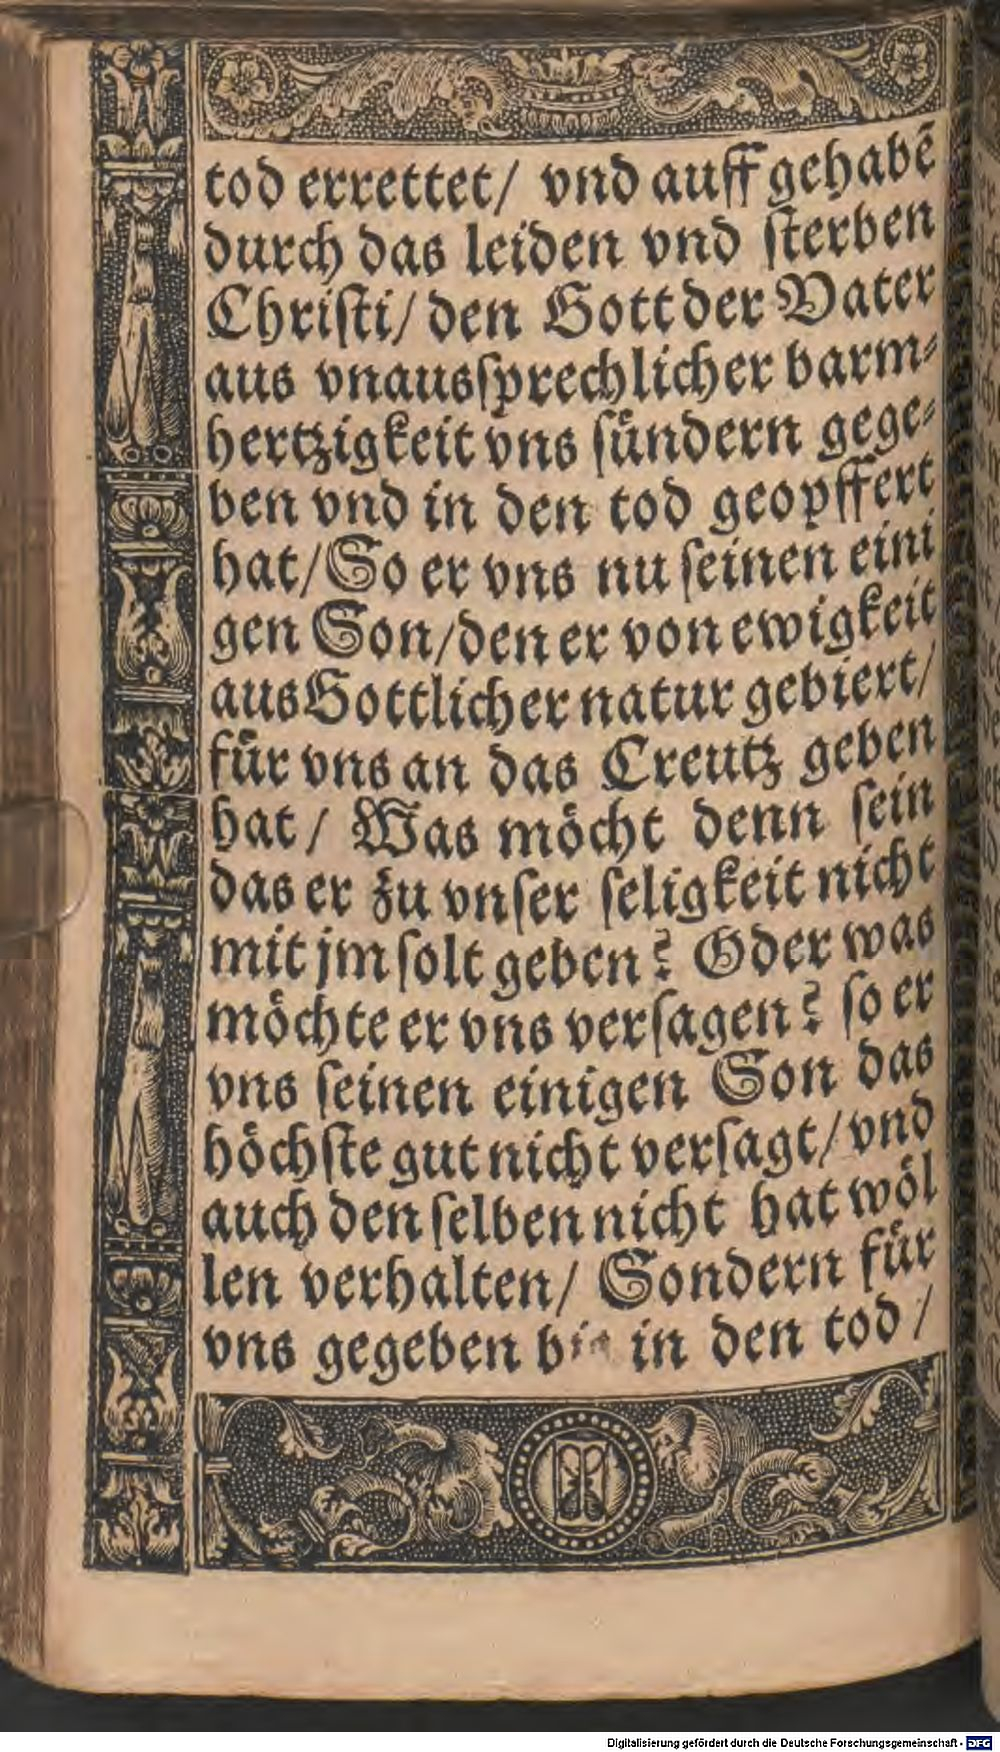 tod errettet/ vnd auff gehabē
durch das leiden vnd ſterben
Chriſti/ den Gott der Vater
aus vnausſprechlicher barm⸗
hertzigkeit vns ſündern gege⸗
ben vnd in den tod geopffert
hat/ So er vns nu ſeinen eini
gen Son/ den er von ewigkeit
aus Gottlicher natur gebiert/
für vns an das Creutz geben
hat/ Was möcht denn ſein
das er zu vnſer ſeligkeit nicht
mit jm ſolt geben? Oder was
möchte er vns verſagen? ſo er
vns ſeinen einigen Son das
höchſte gut nicht verſagt/ vnd
auch den ſelben nicht hat wöl
len verhalten/ Sondern für
vns gegeben bis in den tod/
Digitalisierung gefördert durch die Deutsche Forschungsgemeinschaft - DFG